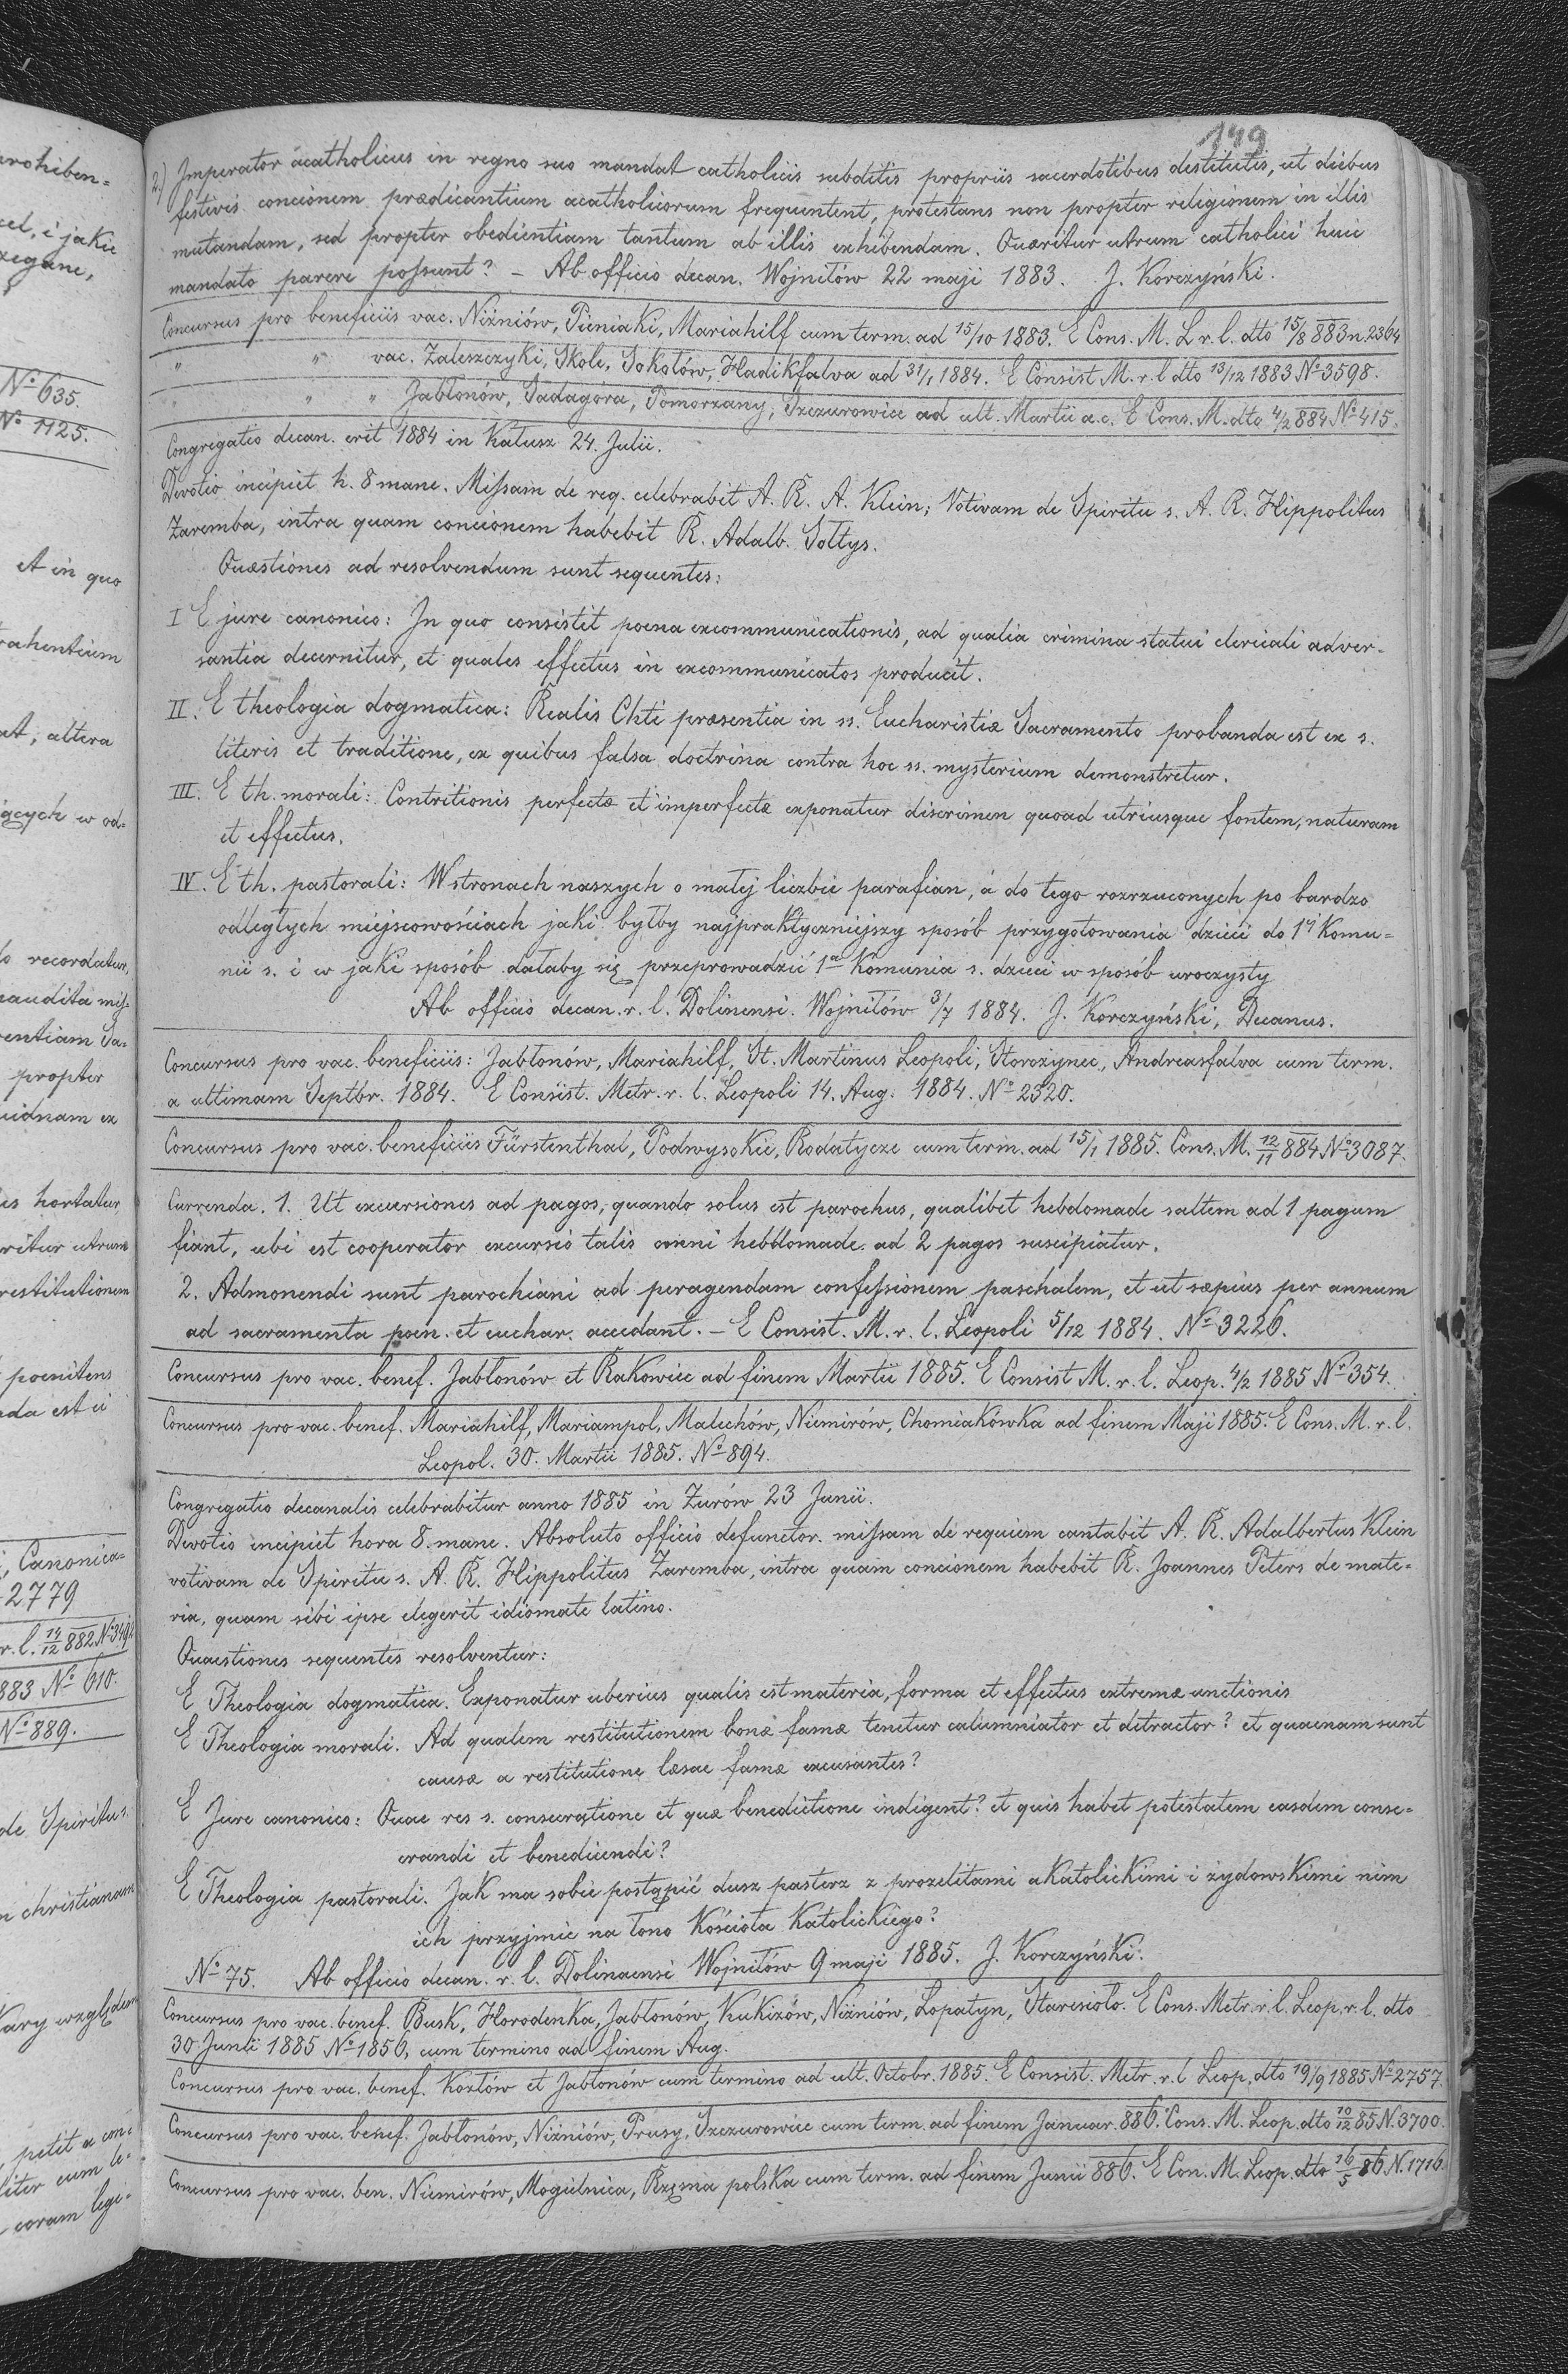 149
2.) Imperator acatholicus in regno suo mandat catholicis subditis propriis sacerdotibus destitutis, ut diebus
festivis concionem prædicantium acatholicorum frequentent, protestans non propter religionem in illis
mutandam, sed propter obedientiam tantum ab illis exhibendam. Quæritur utrum catholici huic
mandato parere possunt? – Ab officio decan. Wojniłów 22 maji 1883. J. Korczyński.
Concursus pro beneficiis vac. Niżniów, Pieniaki, Mariahilf cum term. ad 15/10 1883. E Cons. M. L r. l. dto 15/8 883 n. 2364
" " vac. Zaleszczyki, Skole, Sokołów, Hadikfalva ad 31/1 1884. E Consist M. r. l dto 13/12 1883 No 3598.
" " " Jabłonów, Sadagóra, Pomorzany, Szczurowice ad ult. Martii a. c. E Cons. M. dto 4/2 884 No 415.
Congregatio decan. erit 1884 in Kałusz 24. Julii.
Devotio incipiet h. 8 mane. Missam de req. celebrabit A. R. A. Klein; Votivam de Spiritu s. A. R. Hippolitus
Zaremba, intra quam concionem habebit R. Adalb. Sołtys.
Quæstiones ad resolvendum sunt sequentes:
I E jure canonico: In quo consistit poena excommunicationis, ad qualia crimina statui clericali adver-
santia decernitur, et quales effectus in excommunicatos producit.
II. E theologia dogmatica: Realis Chti præsentia in ss. Eucharistiæ Sacramento probanda est ex s.
literis et traditione, ex quibus falsa doctrina contra hoc ss. mysterium demonstretur.
III. E th. morali: Contritionis perfectæ et imperfectæ exponatur discrimen quoad utriusque fontem, naturam
et effectus.
IV. E th. pastorali: W stronach naszych o małej liczbie parafian, a do tego rozrzuconych po bardzo
odległych miejscowościach jaki byłby najpraktyczniejszy sposób przygotowania dzieci do 1ej Komu-
nii s. i w jaki sposób dałaby się przeprowadzić 1a Komunia s. dzieci w sposób uroczysty
Ab officio decan. r. l. Dolinensi. Wojniłów 3/7 1884. J. Korczyński, Decanus.
Concursus pro vac. beneficiis: Jabłonów, Mariahilf, St. Martinus Leopoli, Storożynec, Andreasfalva cum term.
a ultimam Septbr. 1884. E Consist. Metr. r. l. Leopoli 14. Aug. 1884. No 2320.
Concursus pro vac. beneficiis Fürstenthal, Podwysokie, Rodatycze cum term. ad 15/1 1885. Cons. M. 12/11 884 No 3087.
Currenda. 1. Ut excursiones ad pagos, quando solus est parochus, qualibet hebdomade saltem ad 1 pagum
fiant, ubi est cooperator excursio talis omni hebdomade ad 2 pagos suscipiatur.
2. Admonendi sunt parochiani ad peragendam confessionem paschalem, et ut sæpius per annum
ad sacramenta poen. et euchar. accedant. – E Consist. M. r. l. Leopoli 5/12 1884. No 3226.
Concursus pro vac. benef. Jabłonów et Rakowiec ad finem Martii 1885. E Consist M. r. l. Leop. 4/2 1885 No 354.
Concursus pro vac. benef. Mariahilf, Mariampol, Malechów, Niemirów, Chomiakówka ad finem Maji 1885. E Cons. M. r. l.
Leopol. 30. Martii 1885. No 894.
Congregatio decanalis celebrabitur anno 1885 in Żurów 23 Junii.
Devotio incipiet hora 8. mane. Absoluto officio defunctor. missam de requiem cantabit A. R. Adalbertus Klein
votivam de Spiritu s. A. R. Hippolitus Zaremba, intra quam concionem habebit R. Joannes Peters de mate-
ria, quam sibi ipse elegerit idiomate latino.
Quaestiones sequentes resolventur:
E Theologia dogmatica. Exponatur uberius qualis est materia, forma et effectus extremæ unctionis
E Theologia morali. Ad qualem restitutionem bonæ famæ tenetur calumniator et detractor? et quaenam sunt
causæ a restitutione læsae famæ excusantes?
E Jure canonico: Quae res s. consecratione et quæ benedictione indigent? et quis habet potestatem easdem conse-
crandi et benedicendi?
E Theologia pastorali. Jak ma sobie postąpić dusz pasterz z prozelitami akatolickimi i żydowskimi nim
ich przyjmie na łono Kościoła Katolickiego?
No 75. Ab officio decan. r. l. Dolinaensi Wojniłów 9 maji 1885. J. Korczyński.
Concursus pro vac. benef. Busk, Horodenka, Jabłonów, Kukizów, Niżniów, Łopatyn, Staresioło. E Cons. Metr. r. l. Leop. r. l. dto
30 Junii 1885 No 1856, cum termino ad finem Aug.
Concursus pro vac. benef. Kozłów et Jabłonów cum termino ad ult. Octobr. 1885. E Consist. Metr. r. l Leop. dto 19/9 1885 No 2757
Concursus pro vac. benef. Jabłonów, Niżniów, Prusy, Szczurowice cum term. ad finem Januar. 886. Cons. M. Leop. dto 10/12 85 N. 3700.
Concursus pro vac. ben. Niemirów, Mogielnica, Rzęsna polska cum term. ad finem Junii 886. E Con. M. Leop. dto 16/5 86 N. 1716.